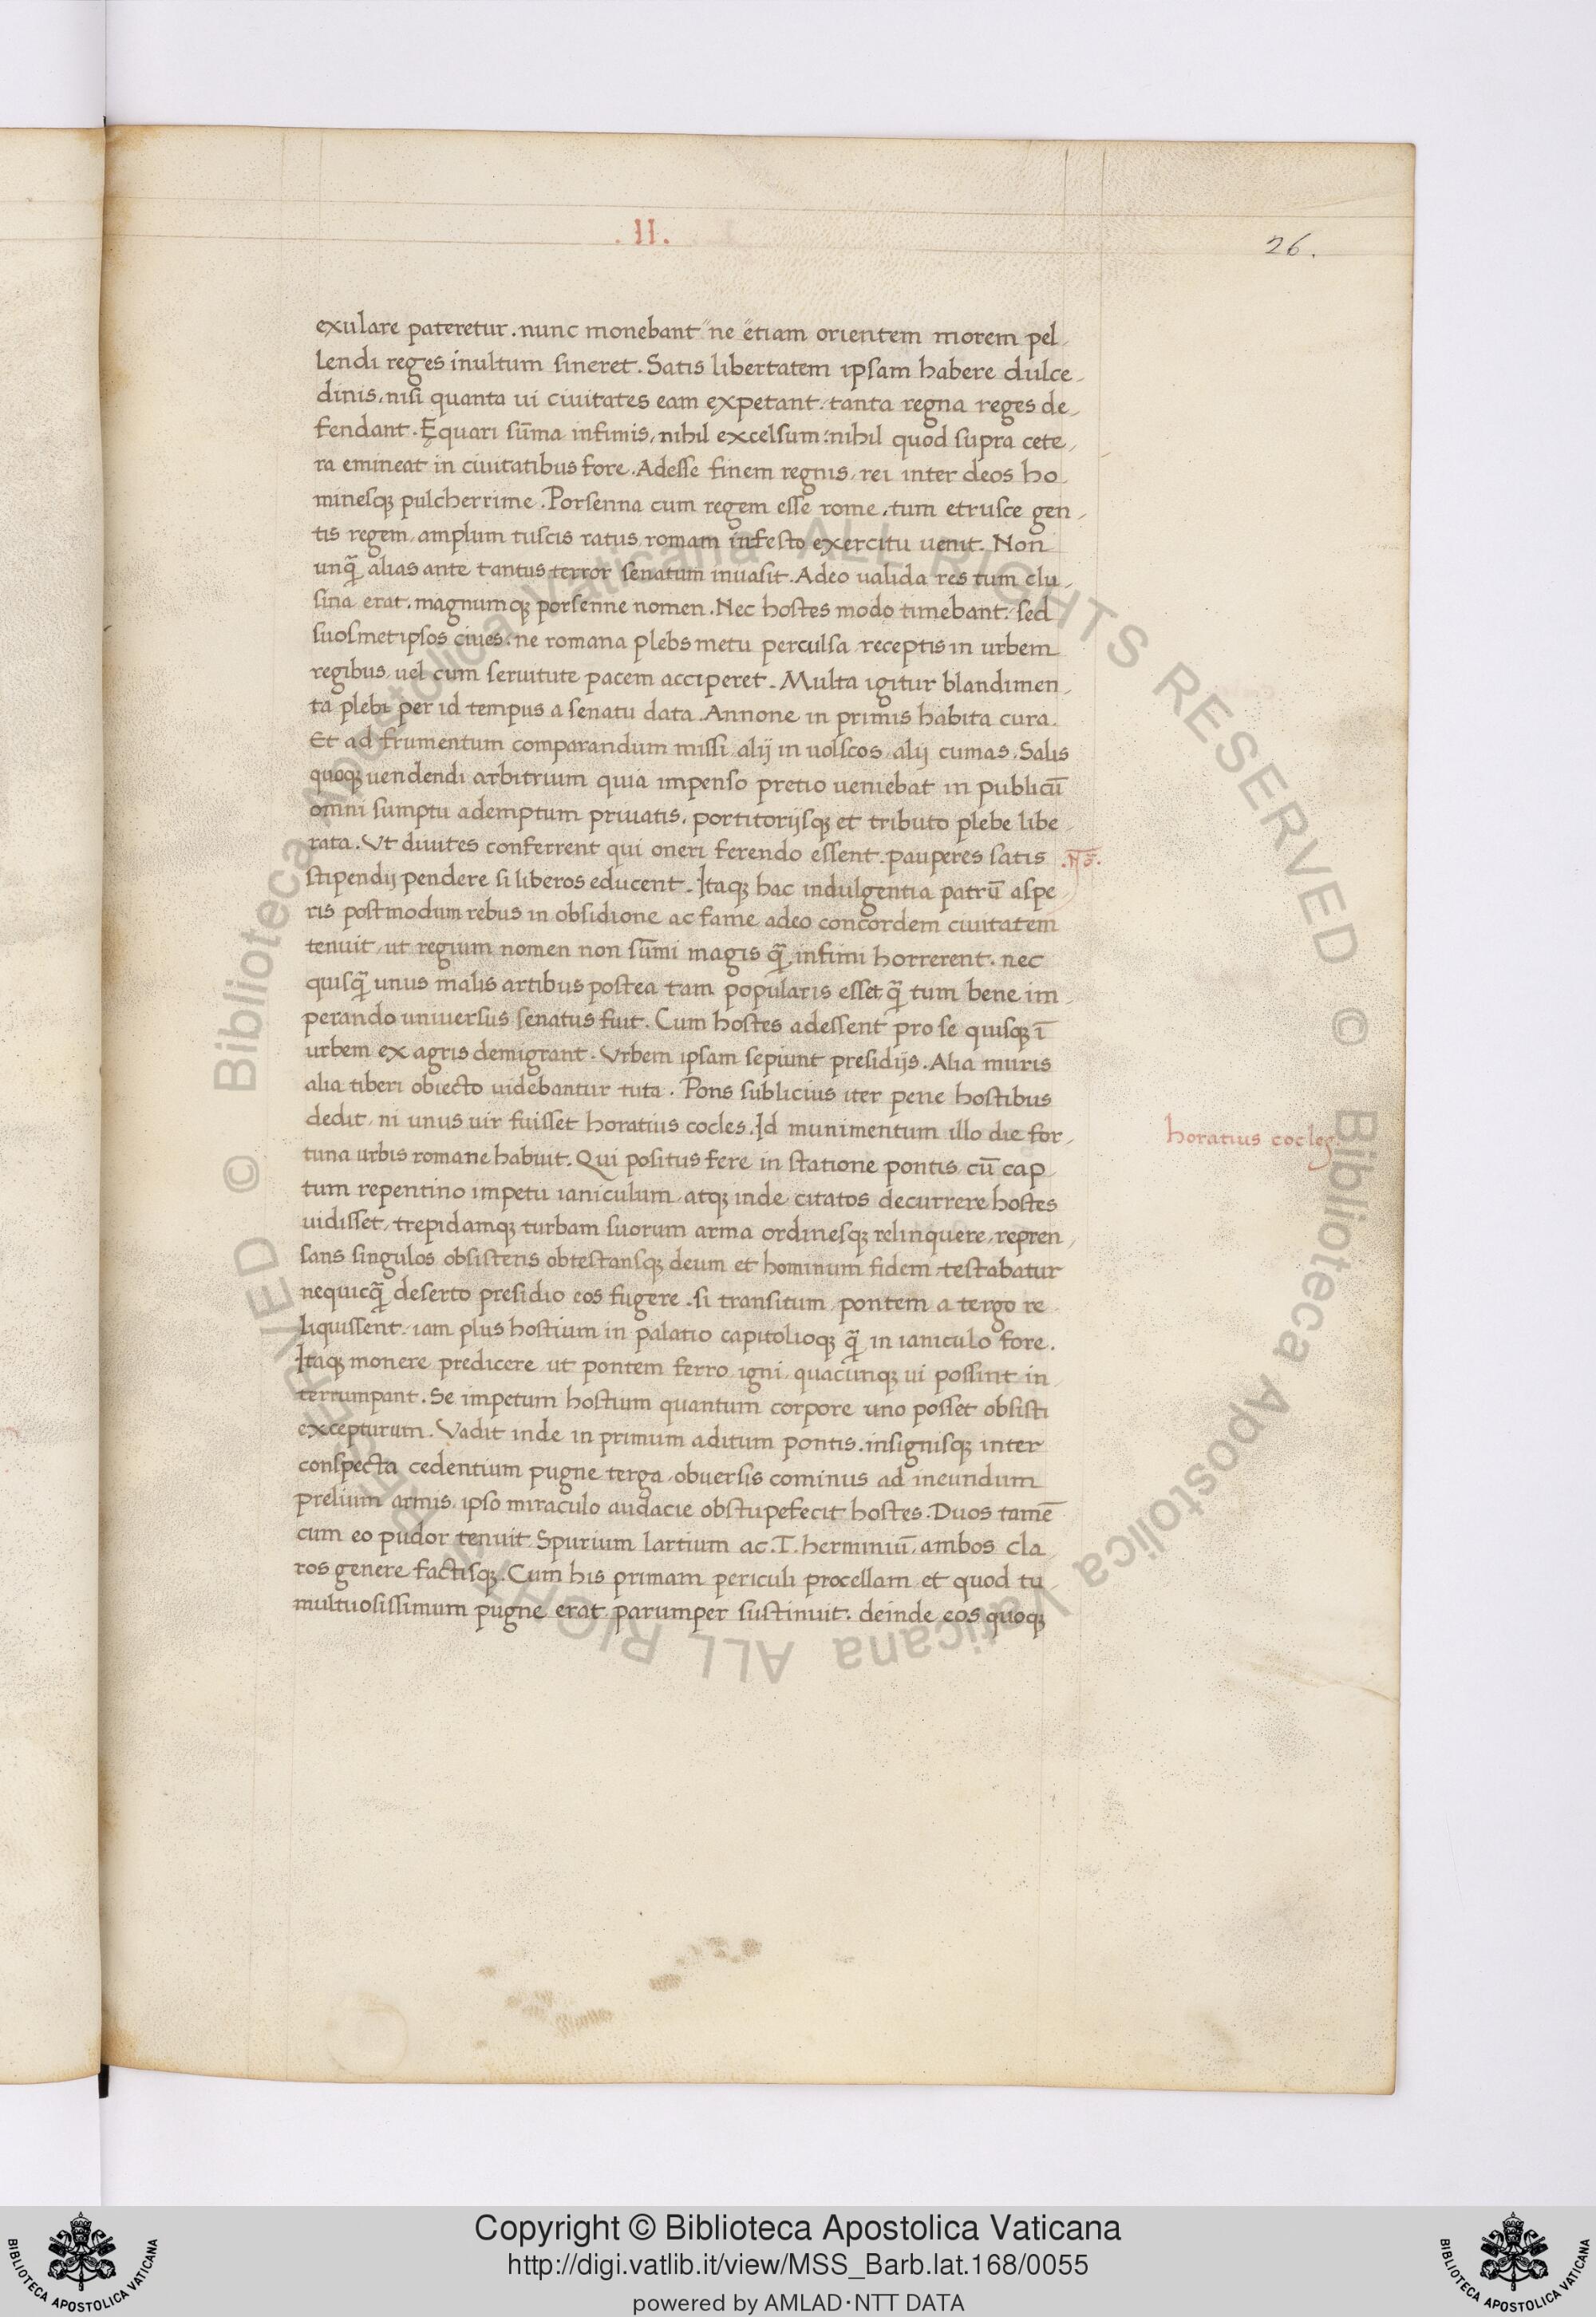 .II.
26.
exulare pateretur. nunc monebant ne etiam orientem morem pel
lendi reges inultum sineret. Satis libertatem ipsam habere dulce
dinis. nisi quanta ui ciuitates eam expetant. tanta regna reges de
fendant. Ęquari sūma infimis, nihil excelsum: nihil quod supra cete
ra emineat in ciuitatibus fore. Adesse finem regnis, rei inter deos ho
minesqꝫ pulcherrime. Porsenna cum regem esse rome, tum etrusce gen
tis regem, amplum tuscis ratus, romam infesto exercitu uenit. Non
unq̄ alias ante tantus terror senatum inuasit. Adeo ualida res tum clu
sina erat. magnumqꝫ porsenne nomen. Nec hostes modo timebant. sed
suosmetipsos ciues. ne romana plebs metu perculsa receptis in urbem
regibus, uel cum seruitute pacem acciperet. Multa igitur blandimen
ta plebi per id tempus a senatu data. Annone in primis habita cura.
Et ad frumentum comparandum missi alij in uolscos, alij cumas. Salis
quoqꝫ uendendi arbitrium quia impenso pretio ueniebat in publicū
omni sumptu ademptum priuatis. portitorijsqꝫ et tributo plebe libe
rata. Vt diuites conferrent qui oneri ferendo essent. pauperes satis
.Nō.
stipendij pendere si liberos educent. Itaqꝫ hac indulgentia patrū aspe
ris postmodum rebus in obsidione ac fame adeo concordem ciuitatem
tenuit, ut regium nomen non sūmi magis q̄ infimi horrerent. nec
quisq̄ unus malis artibus postea tam popularis esset q̄ tum bene im
perando uniuersus senatus fuit. Cum hostes adessent pro se quisqꝫ ī
urbem ex agris demigrant. Vrbem ipsam sepiunt presidijs. Alia muris
alia tiberi obiecto uidebantur tuta. Pons sublicius iter pene hostibus
dedit, ni unus uir fuisset horatius cocles. Id munimentum illo die for
horatius cocles.
tuna urbis romane habuit. Qui positus fere in statione pontis, cū cap
tum repentino impetu ianiculum, atqꝫ inde citatos decurrere hostes
uidisset, trepidamqꝫ turbam suorum arma ordinesqꝫ relinquere, repren
sans singulos obsistens obtestansqꝫ deum et hominum fidem testabatur
nequicq̄ deserto presidio eos fugere. si transitum pontem a tergo re
liquissent. iam plus hostium in palatio capitolioqꝫ q̄ in ianiculo fore.
Itaqꝫ monere predicere ut pontem ferro igni, quacunqꝫ ui possint in
terrumpant. Se impetum hostium quantum corpore uno posset obsisti
excepturum. Vadit inde in primum aditum pontis. insignisqꝫ inter
conspecta cedentium pugne terga, obuersis cominus ad ineundum
prelium armis, ipso miraculo audacie obstupefecit hostes. Duos tamē
cum eo pudor tenuit Spurium lartium ac .T. herminiū, ambos cla
ros genere factisqꝫ. Cum his primam periculi procellam et quod tu
multuosissimum pugne erat parumper sustinuit. deinde eos quoqꝫ
© Biblioteca Apostolica Vaticana ALL RIGHTS RESERVED © Biblioteca Apostolica Vaticana ALL RIGHTS RESERVED
Copyright © Biblioteca Apostolica Vaticana
http://digi.vatlib.it/view/MSS_Barb.lat.168/0055
powered by AMLAD·NTT DATA
BIBLIOTECA APOSTOLICA VATICANA
BIBLIOTECA APOSTOLICA VATICANA